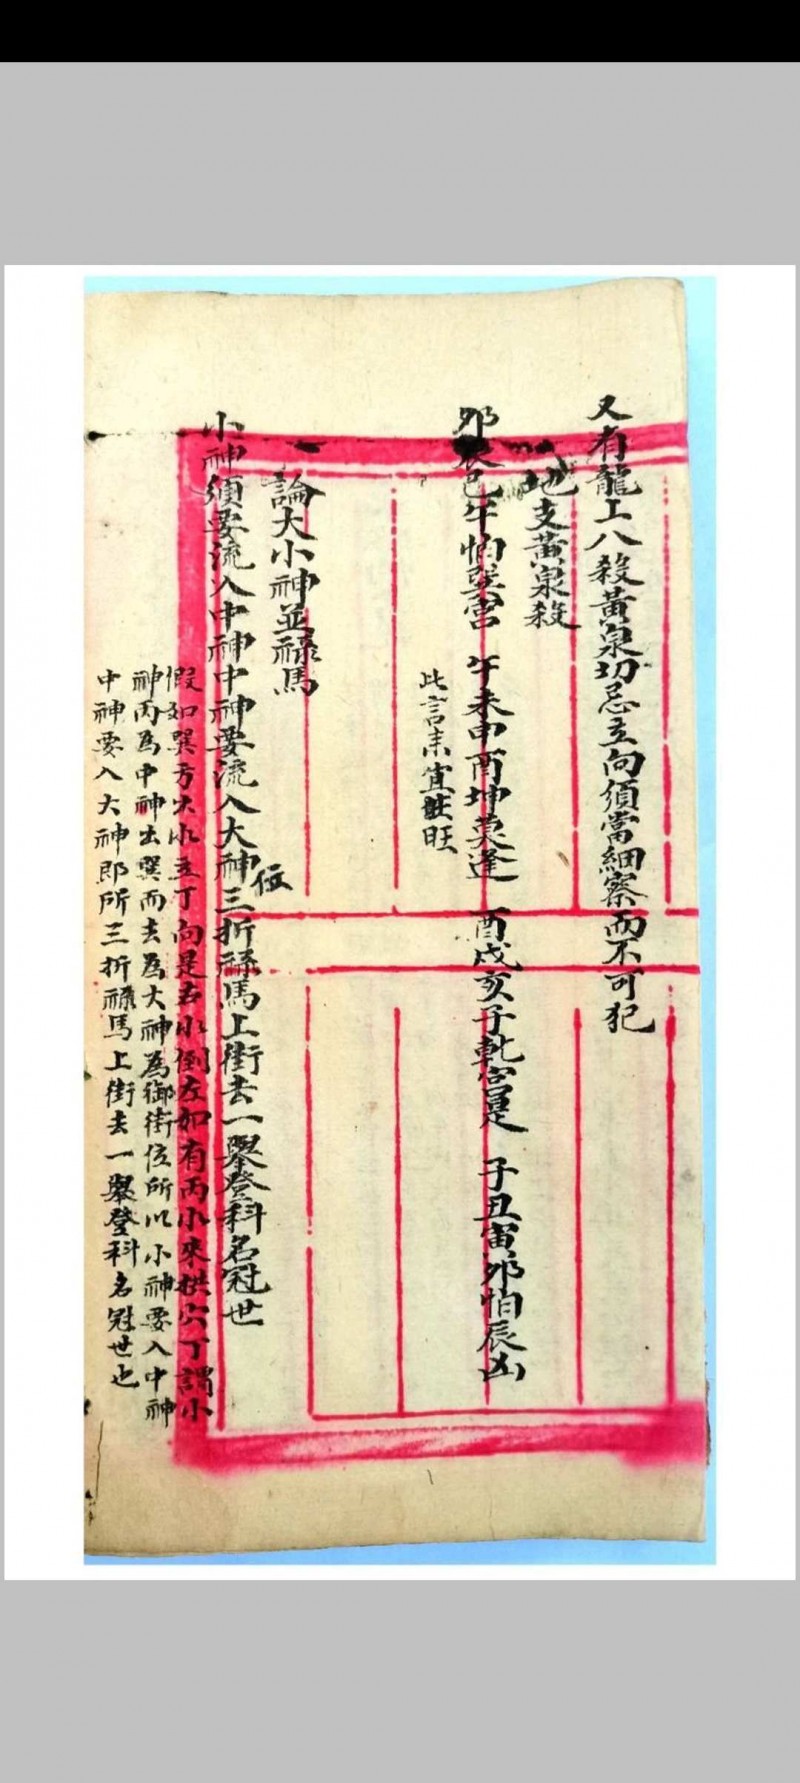 又有龍上八殺黃泉切忌立向須當細察而不可犯
地支黃泉殺
卯辰巳午怕巽宮 午未申酉坤莫逢 酉戌亥子乾宮是 子丑寅卯怕辰凶
此言未宜 旺
論大小神並祿馬
小神須要流入中神中神要流入大神位三折祿馬上街去一舉登科名冠世
假如巽方 水立丁向是右水倒左如有丙水來拱穴丁謂小
神丙為中神出巽而去為大神為御街位所以小神要入中神
中神要入大神即所三折祿馬上街去一舉登科名冠世也